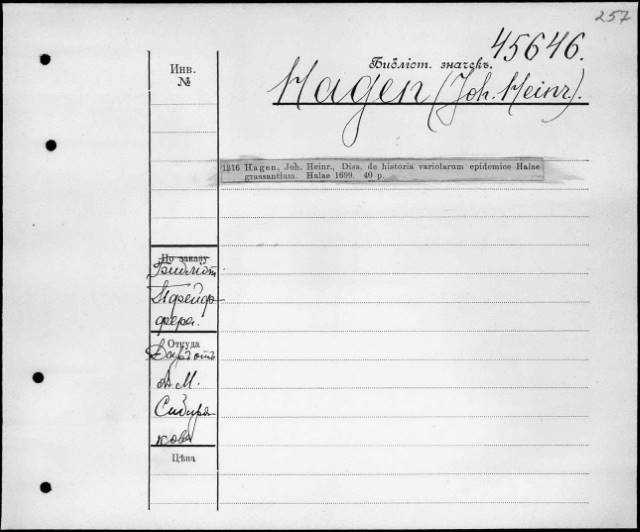 257
45646.
Библіот. значекъ.
Инв.
№
Hagen (Joh. Heinr.).
1316 Hagen, Joh. Heinr., Diss. de historia variolarum epidemice Halae
grassantium. Halae 1699. 40 p.
По заказу
Библіот.
Пфейф-
фера.
Откуда
Даръ отъ
А. М.
Сибиря-
кова
Цѣна